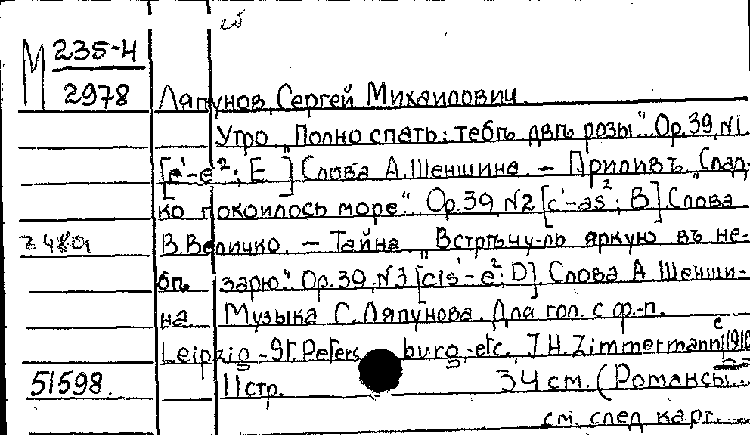 М 235-4
2978
Ляпунов, Сергей Михайлович.
Утро „Полно спать: тебѣ двѣ розы." Op. 39, №1.
[e'-e²; E] Слова А. Шеншина. – Приливъ „Слад-
ко покоилось море." Op. 39 №2 [c'-as²; B] Слова
В. Величко. – Тайна „Встрѣчу-ль яркую въ не-
бѣ зарю." Op. 39, №3 [cis'-e²; D]. Слова А. Шенши-
на. Музыка С. Ляпунова. Для гол. с ф.-п.
Leipzig - St. Petersburg, etc. J. H. Zimmermann, c 1910
51598.
11 стр. 34 см. (Романсы...
см. след. карт.